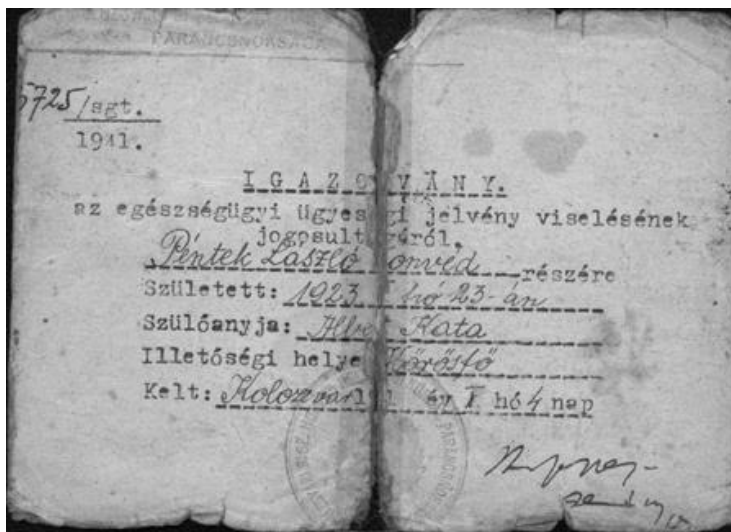 PARANCSNOKSÁGA
5725/sgt.
1941.
IGAZO VÁNY.
az egészségügyi ügyes gi jelvény viselésének
jogosult gáról,
Péntek László onvéd részére
Született: 1923 I hó 23-án
Szülőanyja: Kata
Illetőségi helye Kőrösfő
Kelt: Kolozsvár 1 év I hó 4 nap
PARANCSNOK